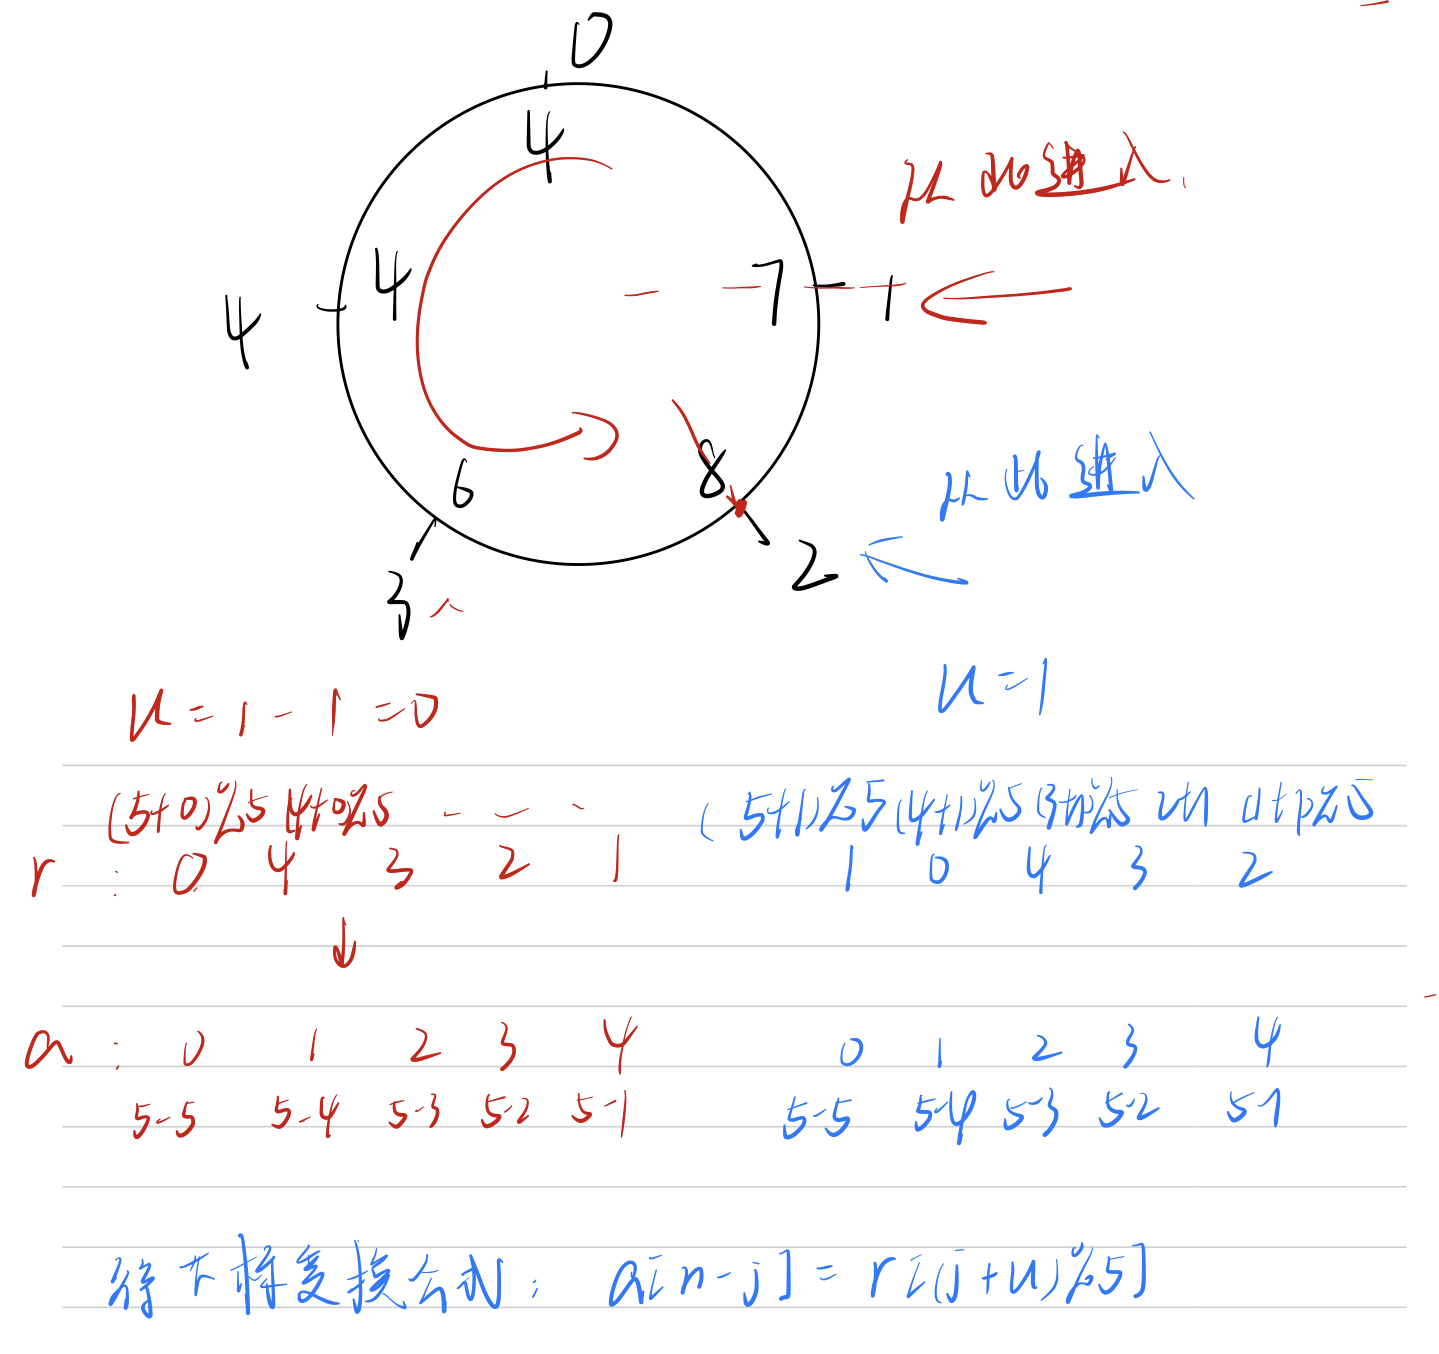 0
4
从此进入
4
4
7
1
从此进入
6
8
3
2
u=1-1=0
u=1
(5+0)%5 (4+0)%5
(5+1)%5 (4+1)%5 (3+1)%5 2+1 (1+1)%5
r: 0 4 3 2 1
1 0 4 3 2
a: 0 1 2 3 4
0 1 2 3 4
5-5 5-4 5-3 5-2 5-1
5-5 5-4 5-3 5-2 5-1
得下标变换公式: a[n-j] = r[(j+u)%5]